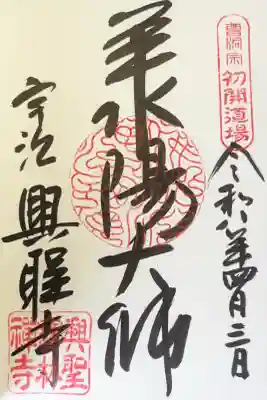 曹洞宗 初開道場
令和八年四月三日
承陽大師
宇治 興聖寺
興聖
林
禅寺